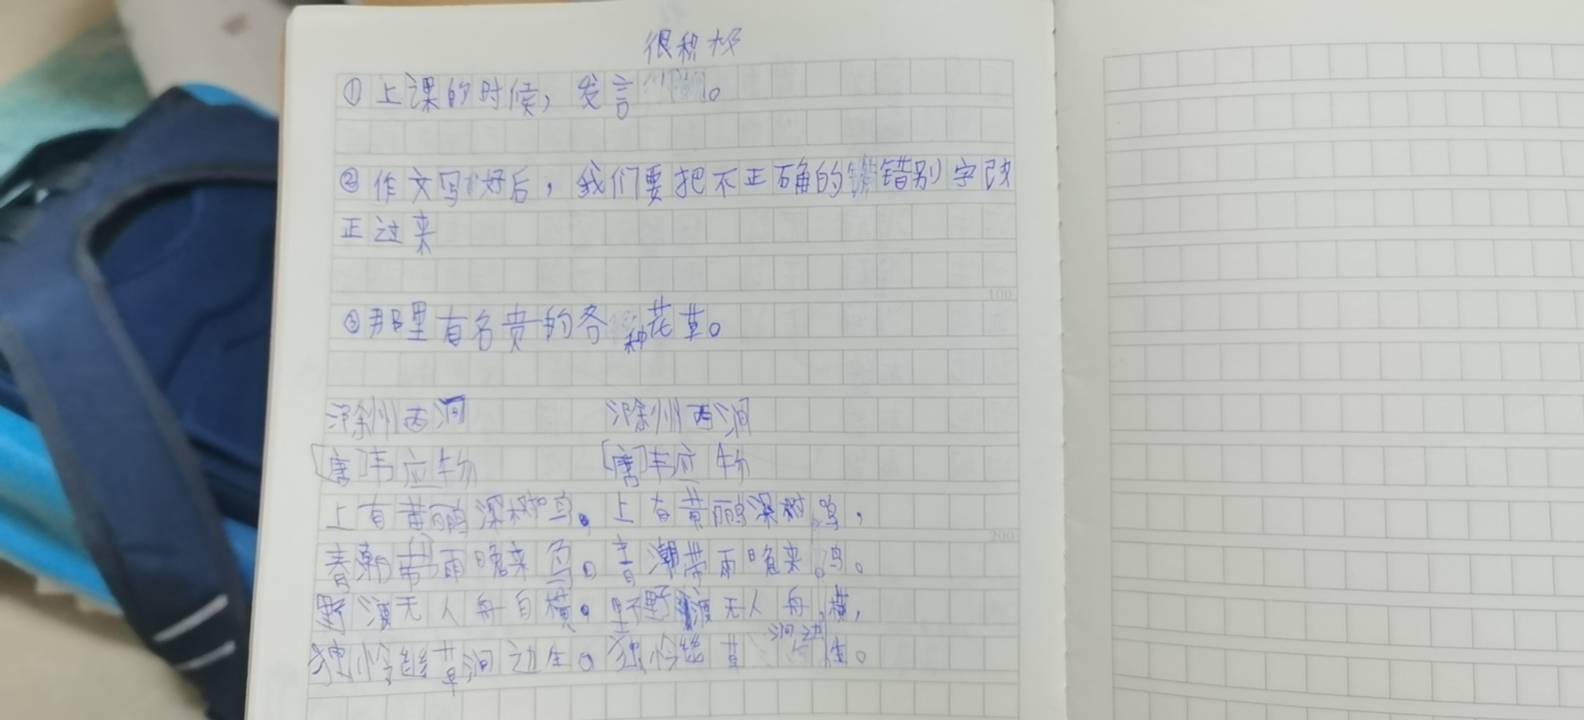 很积极
①上课的时候，发言。
②作文写好后，我们要把不正确的错别字改
正过来
③那里有名贵的各种花草。
滁州西涧 滁州西涧
[唐]韦应物 [唐]韦应物
上有黄鹂深树鸟。上有黄鹂深树鸣，
春朝带雨晚来鱼。春潮带雨晚来鸟。
野渡无人舟自横。野渡无人舟横，
独怜幽草涧边生。独怜幽草涧边生。
100
200